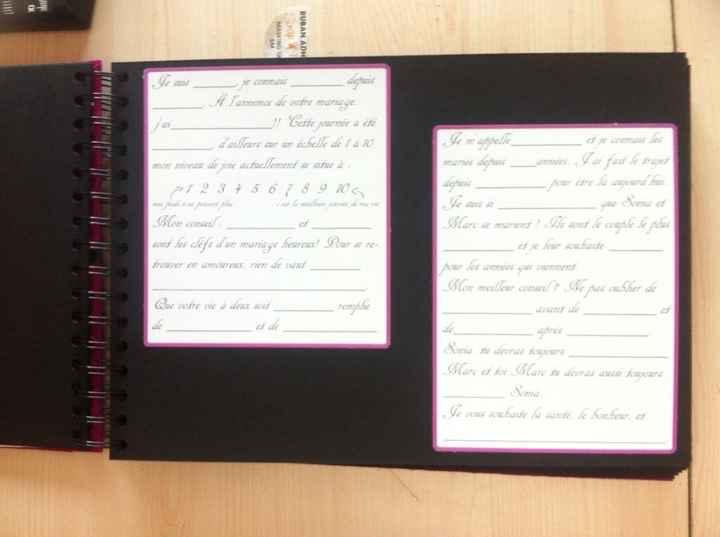 RUBAN ADH
MASKING
Je suis ________, je connais __________ depuis
_________. A l'annonce de votre mariage
j'ai__________________!! Cette journée a été
___________, d'ailleurs sur un échelle de 1 à 10
mon niveau de joie actuellement se situe à :
1 2 3 4 5 6 7 8 9 10
c'est la meilleure journée de ma vie
Mon conseil : ___________ et ___________
sont les cléfs d'un mariage heureux! Pour se re-
trouver en amoureux, rien de vaut _________
______________________________________
Que votre vie à deux soit ___________ remplie
de _______________ et de _________________
Je m'appelle_____________ et je connais les
mariés depuis _____années. J'ai fait le trajet
depuis _____________ pour être là aujourd'hui.
Je suis si _________________ que Sonia et
Marc se marient ! Ils sont le couple le plus
_____________ et je leur souhaite __________
pour les années qui viennent.
Mon meilleur conseil ? Ne pas oublier de
________________ avant de _____________ et
de______________ après _______________.
Sonia tu devras toujours __________________
Marc et toi Marc tu devras aussi toujours
___________ Sonia.
Je vous souhaite la santé, le bonheur, et
________________________________________.